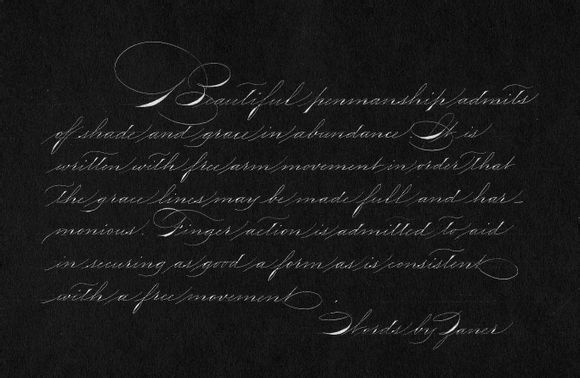 Beautiful penmanship admits
of shade and grace in abundance. It is
written with free arm movement in order that
the grace lines may be made full and har-
monious. Finger action is admitted to aid
in securing as good a form as is consistent
with a free movement.
Words by Zaner